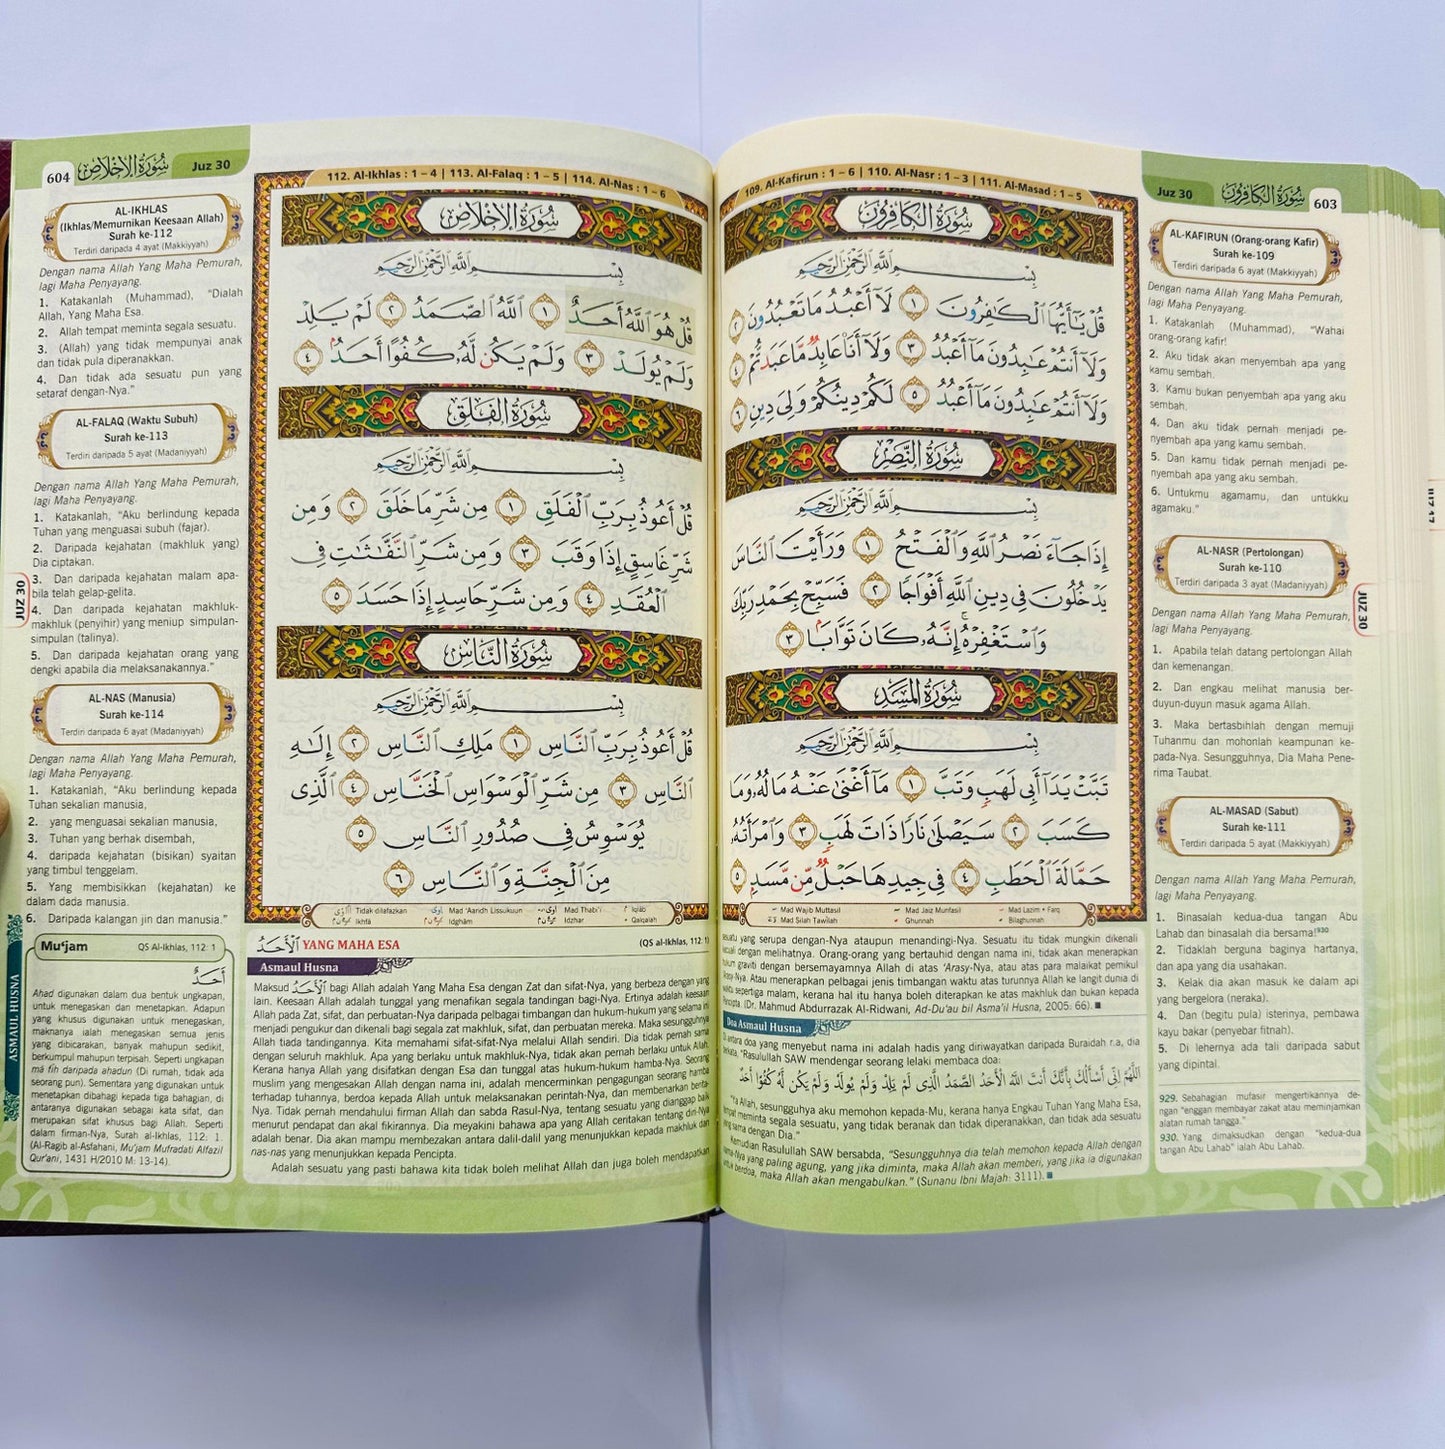 Juz 30
سُورَةُ الكَافِرُونَ
603
109. Al-Kafirun : 1 – 6 | 110. Al-Nasr : 1 – 3 | 111. Al-Masad : 1 – 5
سُورَةُ الكَافِرُونَ
بِسْمِ ٱللَّهِ ٱلرَّحْمَٰنِ ٱلرَّحِيمِ
قُلْ يَٰٓأَيُّهَا ٱلْكَٰفِرُونَ ١ لَآ أَعْبُدُ مَا تَعْبُدُونَ ٢
وَلَآ أَنتُمْ عَٰبِدُونَ مَآ أَعْبُدُ ٣ وَلَآ أَنَا۠ عَابِدٌ مَّا عَبَدتُّمْ ٤
وَلَآ أَنتُمْ عَٰبِدُونَ مَآ أَعْبُدُ ٥ لَكُمْ دِينُكُمْ وَلِيَ دِينِ ٦
سُورَةُ النَّصْرِ
بِسْمِ ٱللَّهِ ٱلرَّحْمَٰنِ ٱلرَّحِيمِ
إِذَا جَآءَ نَصْرُ ٱللَّهِ وَٱلْفَتْحُ ١ وَرَأَيْتَ ٱلنَّاسَ
يَدْخُلُونَ فِى دِينِ ٱللَّهِ أَفْوَاجًا ٢ فَسَبِّحْ بِحَمْدِ رَبِّكَ
وَٱسْتَغْفِرْهُ إِنَّهُۥ كَانَ تَوَّابًۢا ٣
سُورَةُ المَسَدِ
بِسْمِ ٱللَّهِ ٱلرَّحْمَٰنِ ٱلرَّحِيمِ
تَبَّتْ يَدَآ أَبِى لَهَبٍ وَتَبَّ ١ مَآ أَغْنَىٰ عَنْهُ مَالُهُۥ وَمَا
كَسَبَ ٢ سَيَصْلَىٰ نَارًا ذَاتَ لَهَبٍ ٣ وَٱمْرَأَتُهُۥ
حَمَّالَةَ ٱلْحَطَبِ ٤ فِى جِيدِهَا حَبْلٌ مِّن مَّسَدٍۭ ٥
Mad Wajib Muttasil
Mad Jaiz Munfasil
Mad Lazim • Farq
Mad Silah Tawilah
Ghunnah
Bilaghunnah
AL-KAFIRUN (Orang-orang Kafir)
Surah ke-109
Terdiri daripada 6 ayat (Makkiyyah)
Dengan nama Allah Yang Maha Pemurah,
lagi Maha Penyayang.
1. Katakanlah (Muhammad), "Wahai
orang-orang kafir!
2. Aku tidak akan menyembah apa yang
kamu sembah.
3. Kamu bukan penyembah apa yang aku
sembah.
4. Dan aku tidak pernah menjadi pe-
nyembah apa yang kamu sembah.
5. Dan kamu tidak pernah menjadi pe-
nyembah apa yang aku sembah.
6. Untukmu agamamu, dan untukku
agamaku."
AL-NASR (Pertolongan)
Surah ke-110
Terdiri daripada 3 ayat (Madaniyyah)
Dengan nama Allah Yang Maha Pemurah,
lagi Maha Penyayang.
1. Apabila telah datang pertolongan Allah
dan kemenangan.
2. Dan engkau melihat manusia ber-
duyun-duyun masuk agama Allah.
3. Maka bertasbihlah dengan memuji
Tuhanmu dan mohonlah keampunan ke-
pada-Nya. Sesungguhnya, Dia Maha Pene-
rima Taubat.
AL-MASAD (Sabut)
Surah ke-111
Terdiri daripada 5 ayat (Makkiyyah)
Dengan nama Allah Yang Maha Pemurah,
lagi Maha Penyayang.
1. Binasalah kedua-dua tangan Abu
Lahab dan binasalah dia bersama!930
2. Tidaklah berguna baginya hartanya,
dan apa yang dia usahakan.
3. Kelak dia akan masuk ke dalam api
yang bergelora (neraka).
4. Dan (begitu pula) isterinya, pembawa
kayu bakar (penyebar fitnah).
5. Di lehernya ada tali daripada sabut
yang dipintal.
929. Sebahagian mufasir mengertikannya de-
ngan "enggan membayar zakat atau meminjamkan
alatan rumah tangga."
930. Yang dimaksudkan dengan "kedua-dua
tangan Abu Lahab" ialah Abu Lahab.
JUZ 30
sesuatu yang serupa dengan-Nya ataupun menandingi-Nya. Sesuatu itu tidak mungkin dikenali
dengan melihatnya. Orang-orang yang bertauhid dengan nama ini, tidak akan menerapkan
hukum graviti dengan bersemayamnya Allah di atas 'Arasy-Nya, atau atas para malaikat pemikul
'Arasy-Nya. Atau menerapkan pelbagai jenis timbangan waktu atas turunnya Allah ke langit dunia di
waktu sepertiga malam, kerana hal itu hanya boleh diterapkan ke atas makhluk dan bukan kepada
Pencipta. (Dr. Mahmud Abdurrazak Al-Ridwani, Ad-Du'au bil Asma'il Husna, 2005: 66). ■
Doa Asmaul Husna
Di antara doa yang menyebut nama ini adalah hadis yang diriwayatkan daripada Buraidah r.a, dia
berkata, "Rasulullah SAW mendengar seorang lelaki membaca doa:
اللَّهُمَّ إِنِّي أَسْأَلُكَ بِأَنَّكَ أَنْتَ اللَّهُ الْأَحَدُ الصَّمَدُ الَّذِي لَمْ يَلِدْ وَلَمْ يُولَدْ وَلَمْ يَكُنْ لَهُ كُفُوًا أَحَدٌ
"Ya Allah, sesungguhnya aku memohon kepada-Mu, kerana hanya Engkau Tuhan Yang Maha Esa,
tempat meminta segala sesuatu, yang tidak beranak dan tidak diperanakkan, dan tidak ada sesuatu
yang sama dengan Dia."
Kemudian Rasulullah SAW bersabda, "Sesungguhnya dia telah memohon kepada Allah dengan
nama-Nya yang paling agung, yang jika diminta, maka Allah akan memberi, yang jika ia digunakan
untuk berdoa, maka Allah akan mengabulkan." (Sunanu Ibni Majah: 3111). ■
604
سُورَةُ الإِخْلَاصِ
Juz 30
112. Al-Ikhlas : 1 – 4 | 113. Al-Falaq : 1 – 5 | 114. Al-Nas : 1 – 6
سُورَةُ الإِخْلَاصِ
بِسْمِ ٱللَّهِ ٱلرَّحْمَٰنِ ٱلرَّحِيمِ
قُلْ هُوَ ٱللَّهُ أَحَدٌ ١ ٱللَّهُ ٱلصَّمَدُ ٢ لَمْ يَلِدْ
وَلَمْ يُولَدْ ٣ وَلَمْ يَكُن لَّهُۥ كُفُوًا أَحَدٌۢ ٤
سُورَةُ الفَلَقِ
بِسْمِ ٱللَّهِ ٱلرَّحْمَٰنِ ٱلرَّحِيمِ
قُلْ أَعُوذُ بِرَبِّ ٱلْفَلَقِ ١ مِن شَرِّ مَا خَلَقَ ٢ وَمِن
شَرِّ غَاسِقٍ إِذَا وَقَبَ ٣ وَمِن شَرِّ ٱلنَّفَّٰثَٰتِ فِى
ٱلْعُقَدِ ٤ وَمِن شَرِّ حَاسِدٍ إِذَا حَسَدَ ٥
سُورَةُ النَّاسِ
بِسْمِ ٱللَّهِ ٱلرَّحْمَٰنِ ٱلرَّحِيمِ
قُلْ أَعُوذُ بِرَبِّ ٱلنَّاسِ ١ مَلِكِ ٱلنَّاسِ ٢ إِلَٰهِ
ٱلنَّاسِ ٣ مِن شَرِّ ٱلْوَسْوَاسِ ٱلْخَنَّاسِ ٤ ٱلَّذِى
يُوَسْوِسُ فِى صُدُورِ ٱلنَّاسِ ٥
مِنَ ٱلْجِنَّةِ وَٱلنَّاسِ ٦
Tidak dilafazkan
Mad 'Aaridh Lissukuun
Mad Thabi'i
Iqlab
Ikhfa
Idgham
Idzhar
Qalqalah
AL-IKHLAS
(Ikhlas/Memurnikan Keesaan Allah)
Surah ke-112
Terdiri daripada 4 ayat (Makkiyyah)
Dengan nama Allah Yang Maha Pemurah,
lagi Maha Penyayang.
1. Katakanlah (Muhammad), "Dialah
Allah, Yang Maha Esa.
2. Allah tempat meminta segala sesuatu.
3. (Allah) yang tidak mempunyai anak
dan tidak pula diperanakkan.
4. Dan tidak ada sesuatu pun yang
setaraf dengan-Nya."
AL-FALAQ (Waktu Subuh)
Surah ke-113
Terdiri daripada 5 ayat (Madaniyyah)
Dengan nama Allah Yang Maha Pemurah,
lagi Maha Penyayang.
1. Katakanlah, "Aku berlindung kepada
Tuhan yang menguasai subuh (fajar).
2. Daripada kejahatan (makhluk yang)
Dia ciptakan.
3. Dan daripada kejahatan malam apa-
bila telah gelap-gelita.
4. Dan daripada kejahatan makhluk-
makhluk (penyihir) yang meniup simpulan-
simpulan (talinya).
5. Dan daripada kejahatan orang yang
dengki apabila dia melaksanakannya."
AL-NAS (Manusia)
Surah ke-114
Terdiri daripada 6 ayat (Madaniyyah)
Dengan nama Allah Yang Maha Pemurah,
lagi Maha Penyayang.
1. Katakanlah, "Aku berlindung kepada
Tuhan sekalian manusia,
2. yang menguasai sekalian manusia,
3. Tuhan yang berhak disembah,
4. daripada kejahatan (bisikan) syaitan
yang timbul tenggelam.
5. Yang membisikkan (kejahatan) ke
dalam dada manusia.
6. Daripada kalangan jin dan manusia."
JUZ 30
ASMAUL HUSNA
Mu'jam
QS Al-Ikhlas, 112: 1
أَحَدٌ
Ahad digunakan dalam dua bentuk ungkapan,
untuk menegaskan dan menetapkan. Adapun
yang khusus digunakan untuk menegaskan,
maknanya ialah menegaskan semua jenis
yang dibicarakan, banyak mahupun sedikit,
berkumpul mahupun terpisah. Seperti ungkapan
mā fih daripada ahadun (Di rumah, tidak ada
seorang pun). Sementara yang digunakan untuk
menetapkan dibahagi kepada tiga bahagian, di
antaranya digunakan sebagai kata sifat, dan
merupakan sifat khusus bagi Allah. Seperti
dalam firman-Nya, Surah al-Ikhlas, 112: 1.
(Al-Ragib al-Asfahani, Mu'jam Mufradati Alfazil
Qur'ani, 1431 H/2010 M: 13-14).
الْأَحَدُ YANG MAHA ESA
(QS al-Ikhlas, 112: 1)
Asmaul Husna
Maksud الْأَحَدُ bagi Allah adalah Yang Maha Esa dengan Zat dan sifat-Nya, yang berbeza dengan yang
lain. Keesaan Allah adalah tunggal yang menafikan segala tandingan bagi-Nya. Ertinya adalah keesaan
Allah pada Zat, sifat, dan perbuatan-Nya daripada pelbagai timbangan dan hukum-hukum yang selama ini
menjadi pengukur dan dikenali bagi segala zat makhluk, sifat, dan perbuatan mereka. Maka sesungguhnya
Allah tiada tandingannya. Kita memahami sifat-sifat-Nya melalui Allah sendiri. Dia tidak pernah sama
dengan seluruh makhluk. Apa yang berlaku untuk makhluk-Nya, tidak akan pernah berlaku untuk Allah.
Kerana hanya Allah yang disifatkan dengan Esa dan tunggal atas hukum-hukum hamba-Nya. Seorang
muslim yang mengesakan Allah dengan nama ini, adalah mencerminkan pengagungan seorang hamba
terhadap tuhannya, berdoa kepada Allah untuk melaksanakan perintah-Nya, dan membenarkan berita-
Nya. Tidak pernah mendahului firman Allah dan sabda Rasul-Nya, tentang sesuatu yang dianggap baik
menurut pendapat dan akal fikirannya. Dia meyakini bahawa apa yang Allah ceritakan tentang diri-Nya
adalah benar. Dia akan mampu membezakan antara dalil-dalil yang menunjukkan kepada makhluk dan
nas-nas yang menunjukkan kepada Pencipta.
Adalah sesuatu yang pasti bahawa kita tidak boleh melihat Allah dan juga boleh mendapatkan